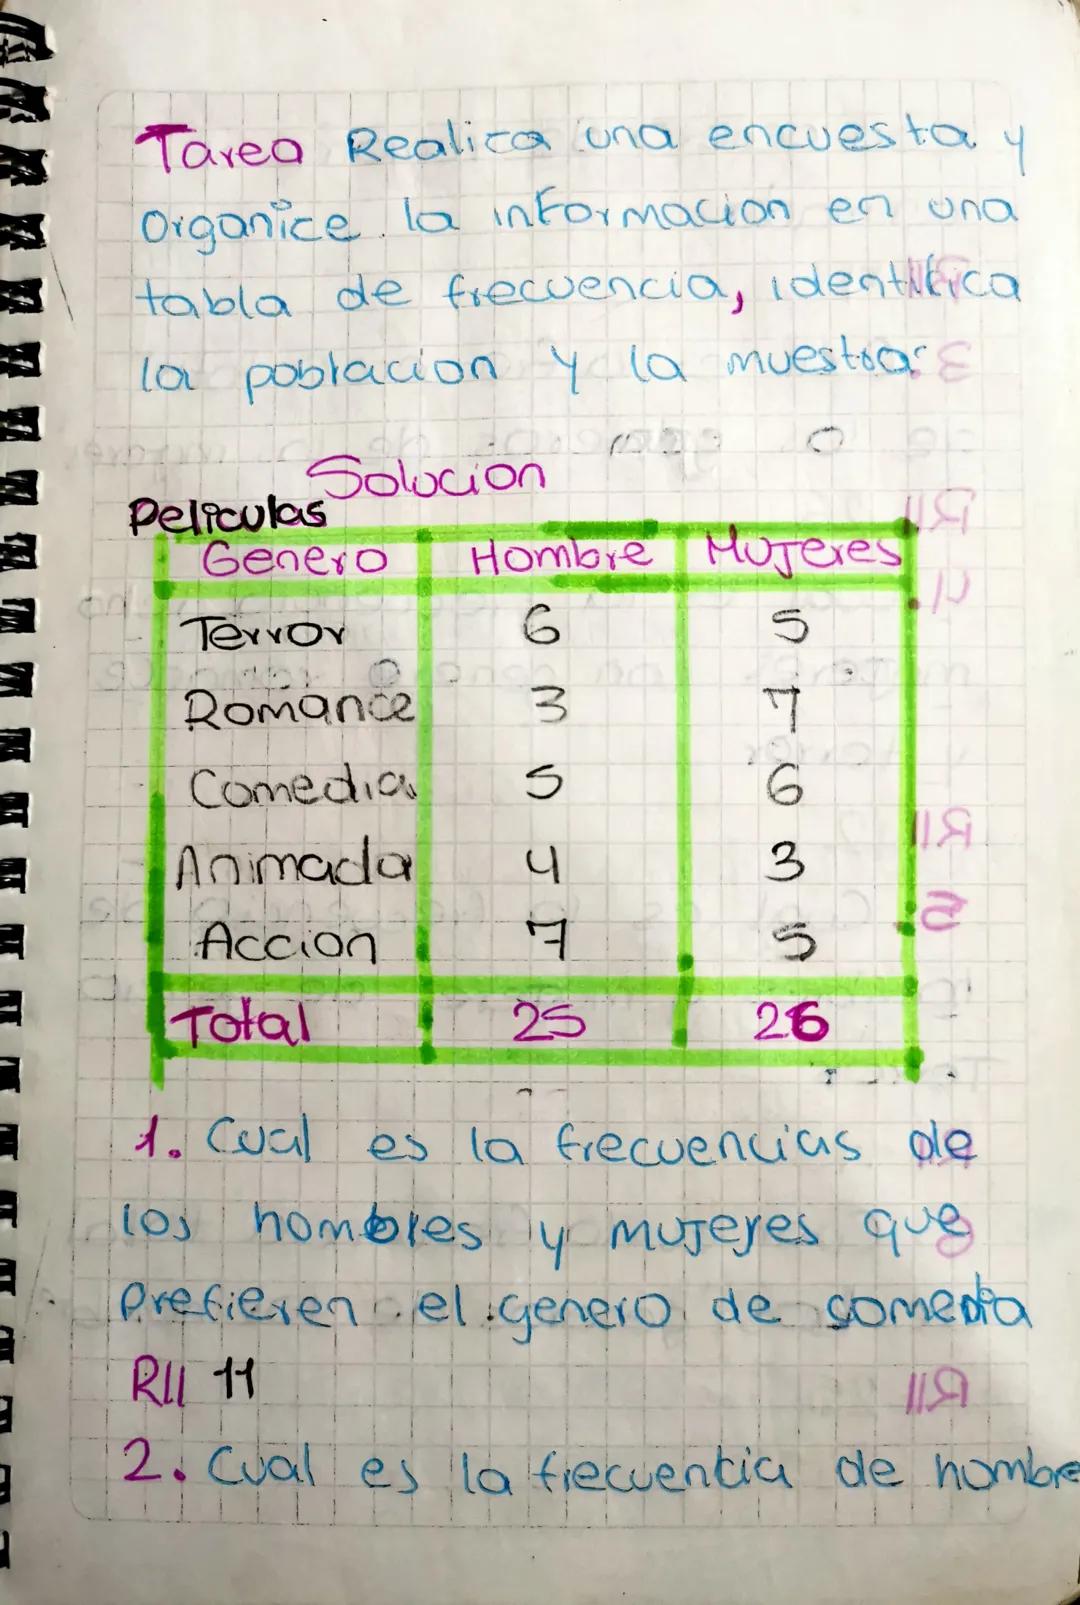 Tarea Realica una encuesta y
Organice la informacion en una
tabla de frecuencia, identifica
la poblacion y la muestra:
Solucion
Peliculas
Genero Hombre Mujeres
Terror 6 5
Romance 3 7
Comedia 5 6
Animada 4 3
Accion 7 5
Total 25 26
1. Cual es la frecuencias de
los hombres y mujeres que
Prefieren el genero de comedia
R// 11
2. Cual es la frecuentia de hombre